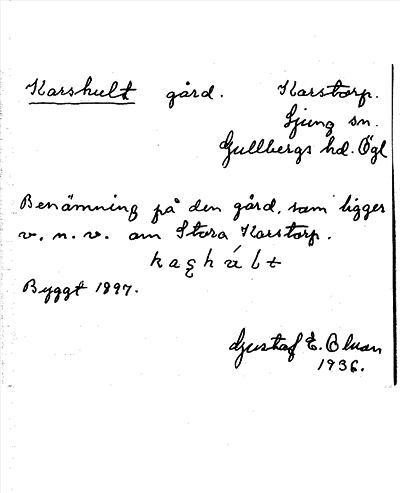 Karshult gård. Karstorp.
Ljung sn.
Gullbergs hd. Ögl
Benämning på den gård, som ligger
v. n. v. om Stora Karstorp.
Byggt 1897.
Gustaf E. Olman
1936.